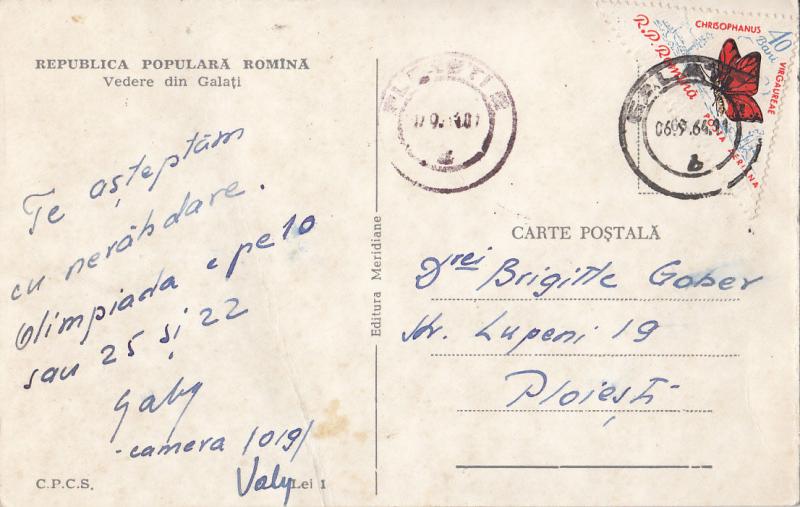 REPUBLICA POPULARĂ ROMÎNĂ
Vedere din Galați
Te așteptăm
cu nerăbdare.
Olimpiada e pe 10
sau 25 și 22
Gaby
-camera 1019/
Valy
C.P.C.S.
Lei 1
Editura Meridiane
PLOIEȘTI
CHRISOPHANUS
VIRGAUREAE
40
Bani
R.P. Romînă
POȘTA AERIANA
06.9.64
b
CARTE POȘTALĂ
Drei Brigitte Gober
Str. Lupeni 19
Ploiești